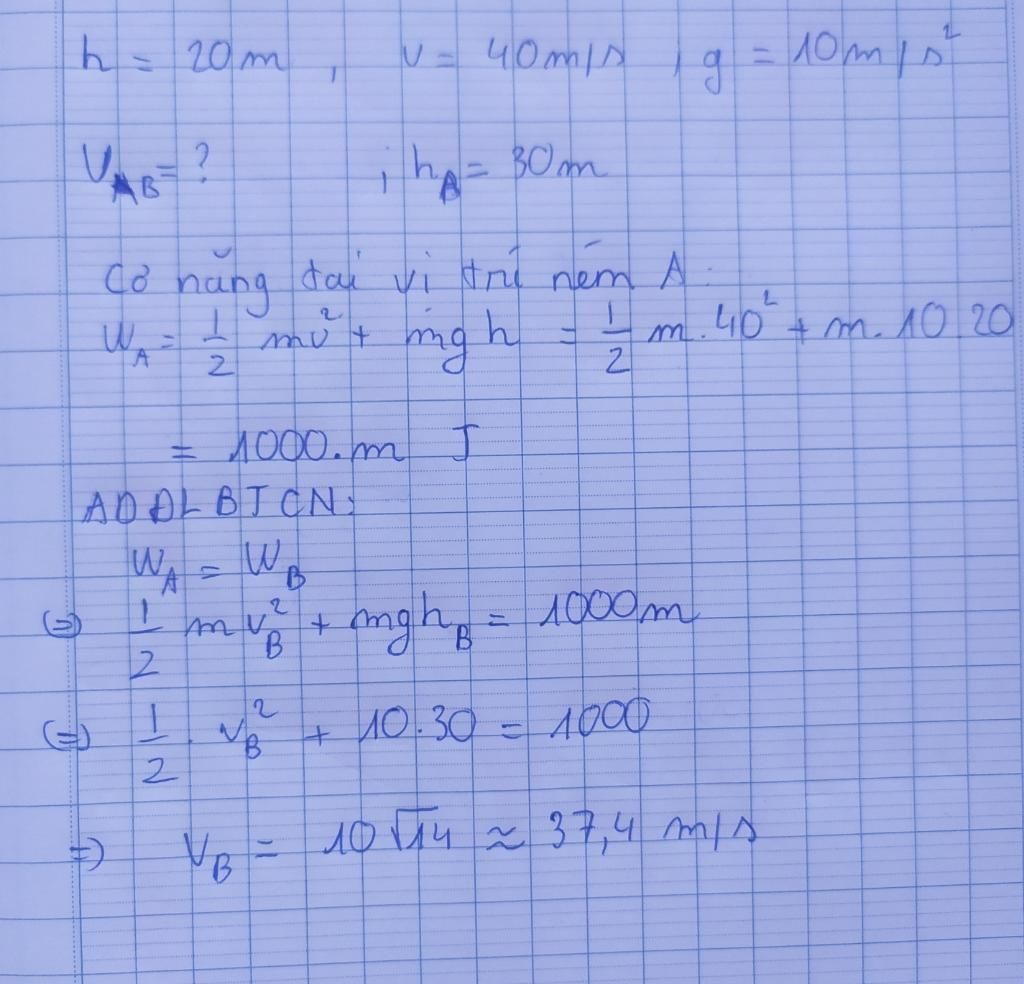 h = 20m , v = 40m/s , g = 10m/s²
V_B = ? ; h_B = 30m
Cơ năng tại vị trí ném A.
W_A = 1/2 mv² + mgh = 1/2 m.40² + m.10.20
= 1000.m J
ADĐLBTCN:
W_A = W_B
(=) 1/2 m v_B² + mgh_B = 1000m
(=) 1/2 . v_B² + 10.30 = 1000
=) v_B = 10√14 ≈ 37,4 m/s